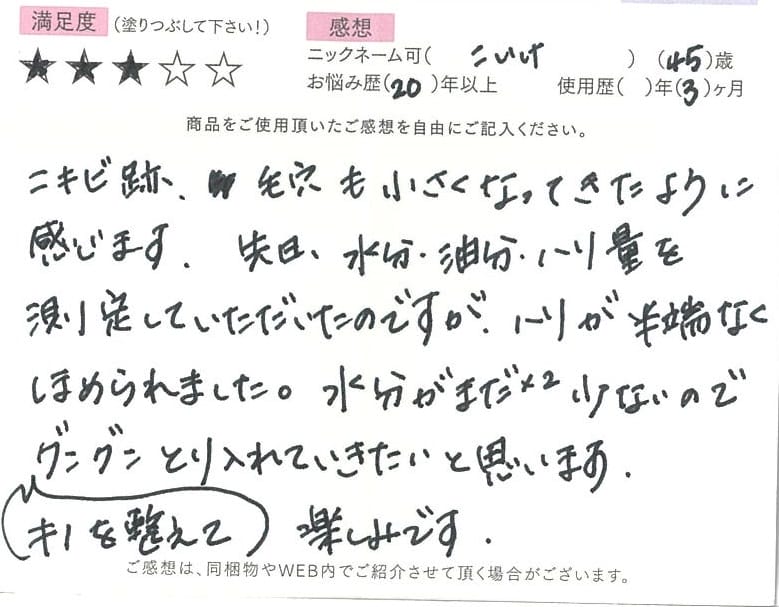 満足度 (塗りつぶして下さい!) 感想
★★★☆☆
ニックネーム可( こいけ ) (45)歳
お悩み歴(20)年以上 使用歴( )年(3)ヶ月
商品をご使用頂いたご感想を自由にご記入ください。
ニキビ跡、毛穴も小さくなってきたように
感じます。先日、水分・油分・ハリ量を
測定していただいたのですが、ハリが半端なく
ほめられました。水分がまだ 少ないので
グングンとり入れていきたいと思います。
(キメを整えて) 楽しみです。
ご感想は、同梱物やWEB内でご紹介させて頂く場合がございます。